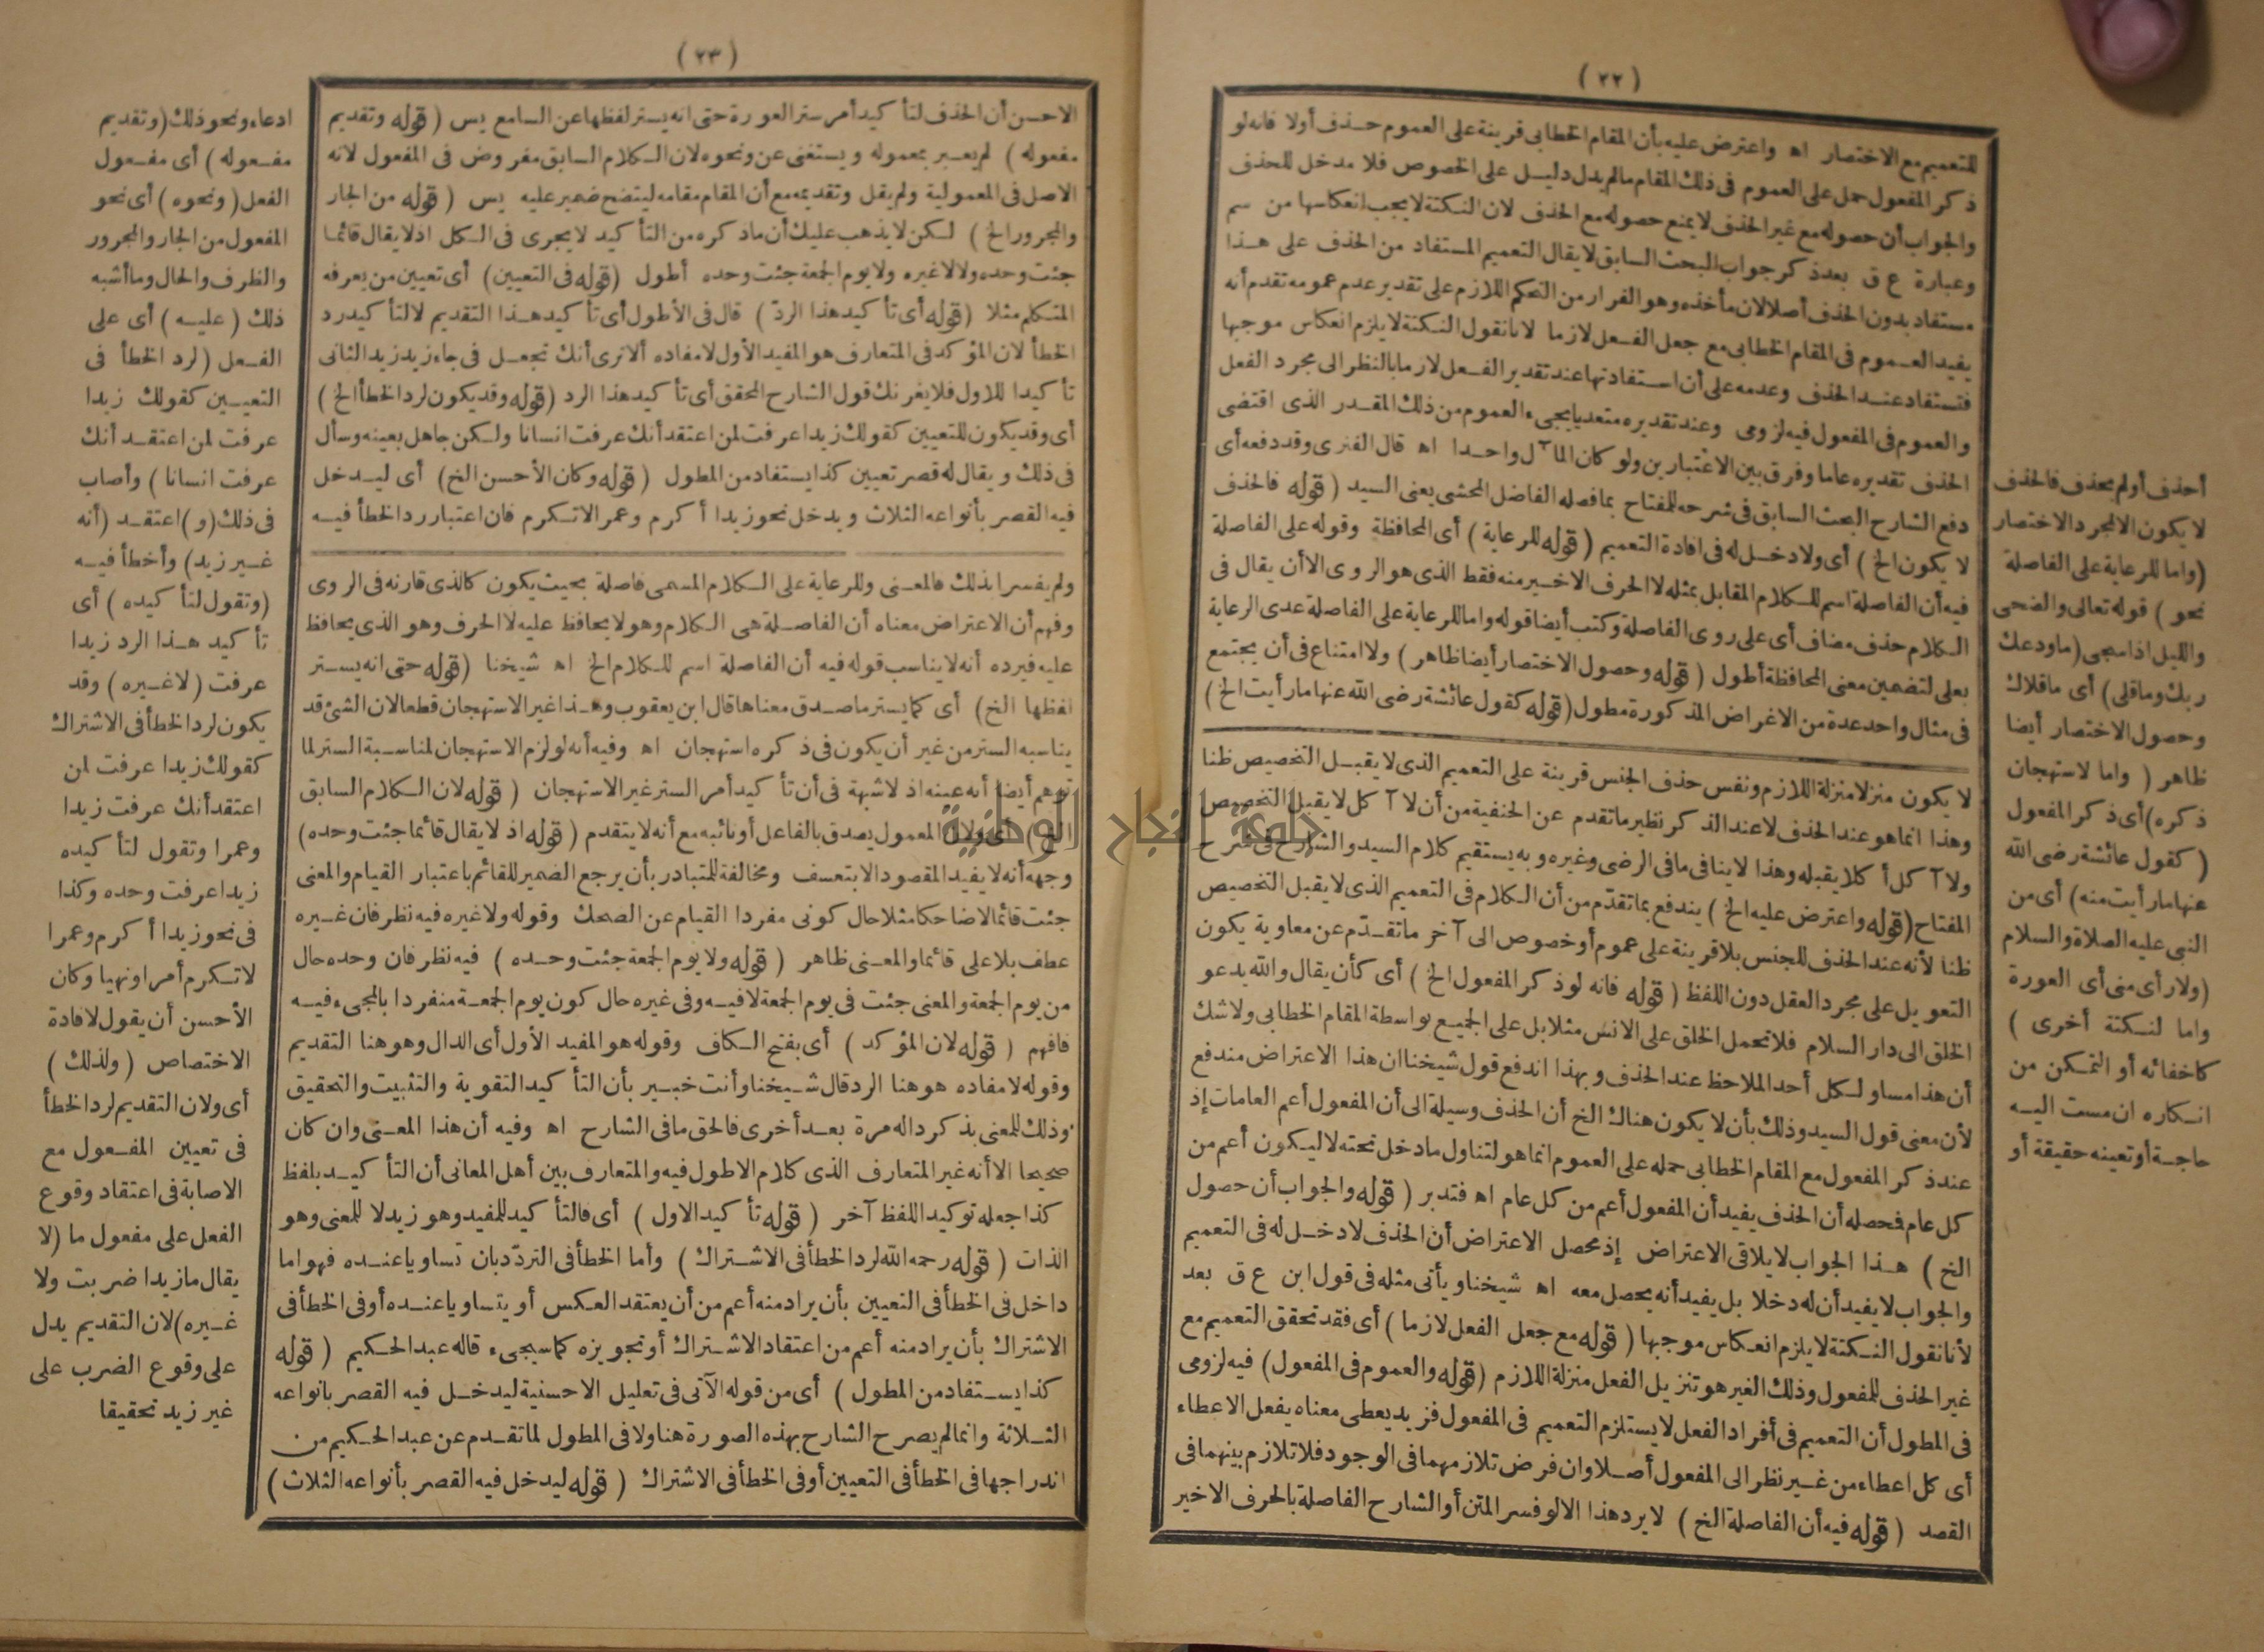 (٢٢)
للتعميم مع الاختصار اه واعترض عليه بأن المقام الخطابى قرينة على العموم حذف أولا فانه لو
ذكر المفعول حمل على العموم فى ذلك المقام مالم يدل دليل على الخصوص فلا مدخل للحذف
والجواب أن حصوله مع غير الحذف لا يمنع حصوله مع الحذف لان النكتة لا يجب انعكاسها من سم
وعبارة ع ق بعد ذكر جواب البحث السابق لا يقال التعميم المستفاد من الحذف على هذا
مستفاد بدون الحذف أصلا لان مأخذه وهو الفرار من التحكم اللازم على تقدير عدم عمومه تقدم أنه
يفيد العموم فى المقام الخطابى مع جعل الفعل لازما لانا نقول النكتة لا يلزم انعكاس موجبها
فتستفاد عند الحذف وعدمه على أن استفادتها عند تقدير الفعل لازما بالنظر الى مجرد الفعل
والعموم فى المفعول فيه لزومى وعند تقديره متعديا يجىء العموم من ذلك المقدر الذى اقتضى
الحذف تقديره عاما وفرق بين الاعتبارين ولو كان المآل واحدا اه قال الفنرى وقد دفعه أى
دفع الشارح البحث السابق فى شرحه للمفتاح بما فصله الفاضل المحشى يعنى السيد (قوله فالحذف
لا يكون الخ) أى ولا دخل له فى افادة التعميم (قوله للرعاية) أى المحافظة وقوله على الفاصلة
فيه أن الفاصلة اسم للكلام المقابل بمثله لا الحرف الاخير منه فقط الذى هو الروى الا أن يقال فى
الكلام حذف مضاف أى على روى الفاصلة وكتب أيضا قوله واما للرعاية على الفاصلة عدى الرعاية
بعلى لتضمين معنى المحافظة أطول (قوله وحصول الاختصار أيضا ظاهر) ولا امتناع فى أن يجتمع
فى مثال واحد عدة من الاغراض المذكورة مطول (قوله كقول عائشة رضى الله عنها ما رأيت الخ)
لا يكون منزلا منزلة اللازم ونفس حذف الجنس قرينة على التعميم الذى لا يقبل التخصيص ظنا
وهذا انما هو عند الحذف لا عند الذكر نظير ما تقدم عن الحنفية من أن لا آكل لا يقبل التخصيص
ولا آكل أكلا يقبله وهذا لا ينافى ما فى الرضى وغيره وبه يستقيم كلام السيد والشارح فى شرح
المفتاح (قوله واعترض عليه الخ) يندفع بما تقدّم من أن الكلام فى التعميم الذى لا يقبل التخصيص
ظنا لأنه عند الحذف للجنس بلا قرينة على عموم أو خصوص الى آخر ما تقدّم عن معاوية يكون
التعويل على مجرد العقل دون اللفظ (قوله فانه لو ذكر المفعول الخ) أى كأن يقال والله يدعو
الخلق الى دار السلام فلا تحمل الخلق على الانس مثلا بل على الجميع بواسطة المقام الخطابى ولا شك
أن هذا مساو لكل أحد الملاحظ عند الحذف وبهذا اندفع قول شيخنا ان هذا الاعتراض مندفع
لأن معنى قول السيد وذلك بأن لا يكون هناك الخ أن الحذف وسيلة الى أن المفعول أعم العامات إذ
عند ذكر المفعول مع المقام الخطابى حمله على العموم انما هو لتناول ما دخل تحته لا ليكون أعم من
كل عام فحصله أن الحذف يفيد أن المفعول أعم من كل عام اه فتدبر (قوله والجواب أن حصول
الخ) هذا الجواب لا يلاقى الاعتراض إذ محصل الاعتراض أن الحذف لا دخل له فى التعميم
والجواب لا يفيد أن له دخلا بل يفيد أنه يحصل معه اه شيخنا ويأتى مثله فى قول ابن ع ق بعد
لأنا نقول النكتة لا يلزم انعكاس موجبها (قوله مع جعل الفعل لازما) أى فقد تحقق التعميم مع
غير الحذف للمفعول وذلك الغير هو تنزيل الفعل منزلة اللازم (قوله والعموم فى المفعول) فيه لزومى
فى المطول أن التعميم فى أفراد الفعل لا يستلزم التعميم فى المفعول فزيد يعطى معناه يفعل الاعطاء
أى كل اعطاء من غير نظر الى المفعول أصلا وان فرض تلازمهما فى الوجود فلا تلازم بينهما فى
القصد (قوله فيه أن الفاصلة الخ) لا يرد هذا الا لو فسر المتن أو الشارح الفاصلة بالحرف الاخير
أحذف أو لم يحذف فالحذف
لا يكون الا لمجرد الاختصار
(واما للرعاية على الفاصلة
نحو) قوله تعالى والضحى
والليل اذا سجى (ما ودعك
ربك وما قلى) أى ما قلاك
وحصول الاختصار أيضا
ظاهر (واما لاستهجان
ذكره) أى ذكر المفعول
(كقول عائشة رضى الله
عنها ما رأيت منه) أى من
النبى عليه الصلاة والسلام
(ولا رأى منى أى العورة
واما لنكتة أخرى)
كاخفائه أو التمكن من
انكاره ان مست اليه
حاجة أو تعينه حقيقة أو
(٢٣)
الاحسن أن الحذف لتأكيد أمر ستر العورة حتى انه يستر لفظها عن السامع يس (قوله وتقديم
مفعوله) لم يعبر بمعموله ويستغنى عن ونحوه لان الكلام السابق مفروض فى المفعول لانه
الاصل فى المعمولية ولم يقل وتقديمه مع أن المقام مقامه ليتضح ضمير عليه يس (قوله من الجار
والمجرور الخ) لكن لا يذهب عليك أن ما ذكره من التأكيد لا يجرى فى الكل اذ لا يقال قائما
جئت وحده ولا لا غيره ولا يوم الجمعة جئت وحده أطول (قوله فى التعيين) أى تعيين من يعرفه
المتكلم مثلا (قوله أى تأكيد هذا الردّ) قال فى الأطول أى تأكيد هذا التقديم لا لتأكيد رد
الخطأ لان المؤكد فى المتعارف هو المفيد الأول لا مفاده ألا ترى أنك تجعل فى جاء زيد زيد الثانى
تأكيدا للاول فلا يغرنك قول الشارح المحقق أى تأكيد هذا الرد (قوله وقد يكون لرد الخطأ الخ)
أى وقد يكون للتعيين كقولك زيدا عرفت لمن اعتقد أنك عرفت انسانا ولكن جاهل بعينه وسأل
فى ذلك ويقال له قصر تعيين كذا يستفاد من المطول (قوله وكان الأحسن الخ) أى ليدخل
فيه القصر بأنواعه الثلاث ويدخل نحو زيدا أكرم وعمرا لا تكرم فان اعتبار رد الخطأ فيه
ولم يفسرا بذلك فالمعنى وللرعاية على الكلام المسمى فاصلة بحيث يكون كالذى قارنه فى الروى
وفهم أن الاعتراض معناه أن الفاصلة هى الكلام وهو لا يحافظ عليه لا الحرف وهو الذى يحافظ
عليه فيرده أنه لا يناسب قوله فيه أن الفاصلة اسم للكلام الخ اه شيخنا (قوله حتى انه يستر
لفظها الخ) أى كما يستر ما صدق معناها قال ابن يعقوب وهذا غير الاستهجان قطعا لان الشئ قد
يناسبه الستر من غير أن يكون فى ذكره استهجان اه وفيه أنه لو لزم الاستهجان لمناسبة الستر لما
توهم أيضا أنه عينه اذ لا شبهة فى أن تأكيد أمر الستر غير الاستهجان (قوله لان الكلام السابق
الخ) أى ولان المعمول يصدق بالفاعل أو نائبه مع أنه لا يتقدم (قوله اذ لا يقال قائما جئت وحده)
وجهه أنه لا يفيد المقصود الا بتعسف ومخالفة للمتبادر بأن يرجع الضمير للقائم باعتبار القيام والمعنى
جئت قائما لا ضاحكا مثلا حال كونى مفردا القيام عن الضحك وقوله ولا غيره فيه نظر فان غيره
عطف بلا على قائما والمعنى ظاهر (قوله ولا يوم الجمعة جئت وحده) فيه نظر فان وحده حال
من يوم الجمعة والمعنى جئت فى يوم الجمعة لا فيه وفى غيره حال كون يوم الجمعة منفردا بالمجىء فيه
فافهم (قوله لان المؤكد) أى بفتح الكاف وقوله هو المفيد الأول أى الدال وهو هنا التقديم
وقوله لا مفاده هو هنا الرد قال شيخنا وأنت خبير بأن التأكيد التقوية والتثبيت والتحقيق
وذلك للمعنى بذكر داله مرة بعد أخرى فالحق ما فى الشارح اه وفيه أن هذا المعنى وان كان
صحيحا الا أنه غير المتعارف الذى كلام الاطول فيه والمتعارف بين أهل المعانى أن التأكيد بلفظ
كذا جعله توكيد اللفظ آخر (قوله تأكيد الاول) أى فالتأكيد للمفيد وهو زيد لا للمعنى وهو
الذات (قوله رحمه الله لرد الخطأ فى الاشتراك) وأما الخطأ فى التردّد بان تساويا عنده فهو اما
داخل فى الخطأ فى التعيين بأن يراد منه أعم من أن يعتقد العكس أو يتساويا عنده أو فى الخطأ فى
الاشتراك بأن يراد منه أعم من اعتقاد الاشتراك أو تجويزه كما سيجىء قاله عبد الحكيم (قوله
كذا يستفاد من المطول) أى من قوله الآتى فى تعليل الاحسنية ليدخل فيه القصر بانواعه
الثلاثة وانما لم يصرح الشارح بهذه الصورة هنا ولا فى المطول لما تقدم عن عبد الحكيم من
اندراجها فى الخطأ فى التعيين أو فى الخطأ فى الاشتراك (قوله ليدخل فيه القصر بأنواعه الثلاث)
ادعاء ونحو ذلك (وتقديم
مفعوله) أى مفعول
الفعل (ونحوه) أى نحو
المفعول من الجار والمجرور
والظرف والحال وما أشبه
ذلك (عليه) أى على
الفعل (لرد الخطأ فى
التعيين كقولك زيدا
عرفت لمن اعتقد أنك
عرفت انسانا) وأصاب
فى ذلك (و) اعتقد (أنه
غير زيد) وأخطأ فيه
(وتقول لتأكيده) أى
تأكيد هذا الرد زيدا
عرفت (لا غيره) وقد
يكون لرد الخطأ فى الاشتراك
كقولك زيدا عرفت لمن
اعتقد أنك عرفت زيدا
وعمرا وتقول لتأكيده
زيدا عرفت وحده وكذا
فى نحو زيدا أكرم وعمرا
لا تكرم أمرا ونهيا وكان
الأحسن أن يقول لافادة
الاختصاص (ولذلك)
أى ولان التقديم لرد الخطأ
فى تعيين المفعول مع
الاصابة فى اعتقاد وقوع
الفعل على مفعول ما (لا
يقال ما زيدا ضربت ولا
غيره) لان التقديم يدل
على وقوع الضرب على
غير زيد تحقيقا
جامعة النجاح الوطنية